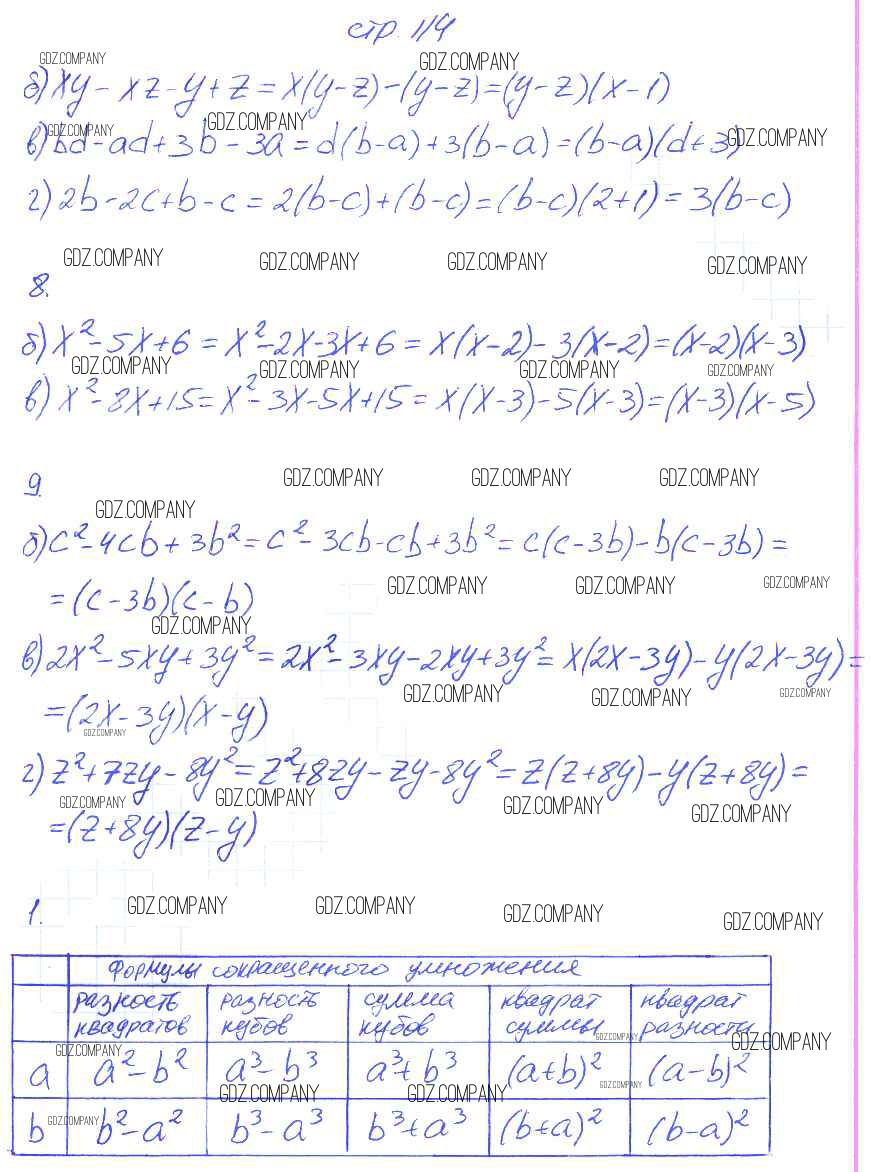 стр. 114
GDZ.COMPANY GDZ.COMPANY
б) xy - xz - y + z = x(y - z) - (y - z) = (y - z)(x - 1)
GDZ.COMPANY GDZ.COMPANY GDZ.COMPANY
в) bd - ad + 3b - 3a = d(b - a) + 3(b - a) = (b - a)(d + 3)
г) 2b - 2c + b - c = 2(b - c) + (b - c) = (b - c)(2 + 1) = 3(b - c)
GDZ.COMPANY GDZ.COMPANY GDZ.COMPANY GDZ.COMPANY
8.
б) x² - 5x + 6 = x² - 2x - 3x + 6 = x(x - 2) - 3(x - 2) = (x - 2)(x - 3)
GDZ.COMPANY GDZ.COMPANY GDZ.COMPANY GDZ.COMPANY
в) x² - 8x + 15 = x² - 3x - 5x + 15 = x(x - 3) - 5(x - 3) = (x - 3)(x - 5)
GDZ.COMPANY GDZ.COMPANY GDZ.COMPANY
9.
GDZ.COMPANY
б) c² - 4cb + 3b² = c² - 3cb - cb + 3b² = c(c - 3b) - b(c - 3b) =
GDZ.COMPANY GDZ.COMPANY GDZ.COMPANY
= (c - 3b)(c - b)
GDZ.COMPANY
в) 2x² - 5xy + 3y² = 2x² - 3xy - 2xy + 3y² = x(2x - 3y) - y(2x - 3y) =
GDZ.COMPANY GDZ.COMPANY GDZ.COMPANY
= (2x - 3y)(x - y)
GDZ.COMPANY
г) z² + 7zy - 8y² = z² + 8zy - zy - 8y² = z(z + 8y) - y(z + 8y) =
GDZ.COMPANY GDZ.COMPANY GDZ.COMPANY GDZ.COMPANY
= (z + 8y)(z - y)
GDZ.COMPANY GDZ.COMPANY GDZ.COMPANY GDZ.COMPANY
1.
Формулы сокращенного умножения
разность квадратов разность кубов сумма кубов квадрат суммы квадрат разности
GDZ.COMPANY GDZ.COMPANY GDZ.COMPANY
a a² - b² a³ - b³ a³ + b³ (a + b)² (a - b)²
GDZ.COMPANY GDZ.COMPANY GDZ.COMPANY
b b² - a² b³ - a³ b³ + a³ (b + a)² (b - a)²
GDZ.COMPANY